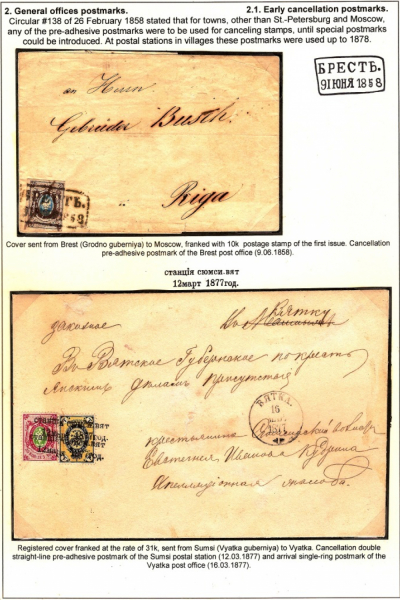 2. General offices postmarks. 2.1. Early cancellation postmarks.
Circular #138 of 26 February 1858 stated that for towns, other than St.-Petersburg and Moscow,
any of the pre-adhesive postmarks were to be used for canceling stamps, until special postmarks
could be introduced. At postal stations in villages these postmarks were used up to 1878.
БРЕСТЬ.
9 IЮНЯ 1858
Herrn
Gebrüder
Riga
Cover sent from Brest (Grodno guberniya) to Moscow, franked with 10k postage stamp of the first issue. Cancellation
pre-adhesive postmark of the Brest post office (9.06.1858).
станцiя сюмси.вят
12март 1877год.
заказное
Вятку
Въ Вятское Губернское по крестьянскимъ
дѣламъ присутствiе
ВЯТКА
16
1877
крестьянина
Ивановна
Registered cover franked at the rate of 31k, sent from Sumsi (Vyatka guberniya) to Vyatka. Cancellation double
straight-line pre-adhesive postmark of the Sumsi postal station (12.03.1877) and arrival single-ring postmark of the
Vyatka post office (16.03.1877).